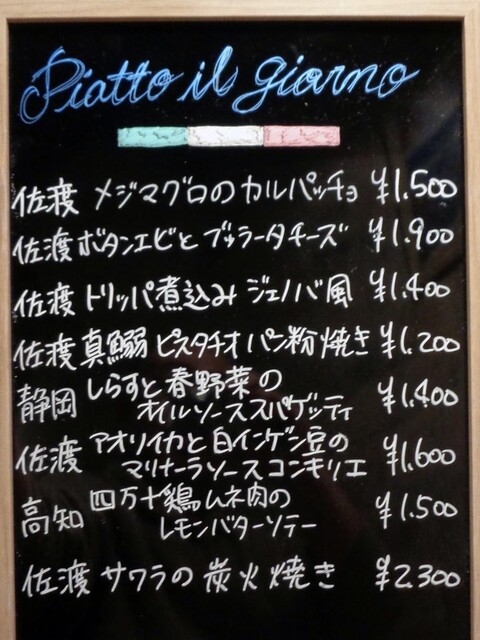 Piatto il giorno
佐渡 メジマグロのカルパッチョ ¥1.500
佐渡 ボタンエビとブッラータチーズ ¥1.900
佐渡 トリッパ煮込み ジェノバ風 ¥1.400
佐渡 真鰯 ピスタチオパン粉焼き ¥1.200
静岡 しらすと春野菜の
オイルソーススパゲッティ ¥1.400
佐渡 アオリイカと白インゲン豆の
マリナーラソースコンキリエ ¥1.600
高知 四万十鶏ムネ肉の
レモンバターソテー ¥1.500
佐渡 サワラの炭火焼き ¥2.300